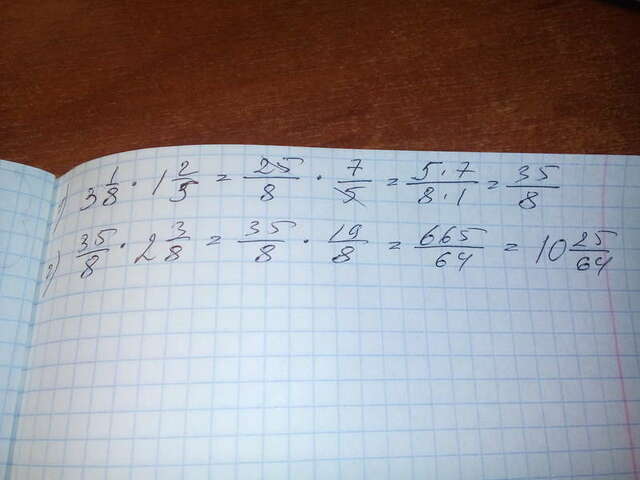 1) 3 1/8 · 1 2/5 = 25/8 · 7/5 = 5·7/8·1 = 35/8
2) 35/8 · 2 3/8 = 35/8 · 19/8 = 665/64 = 10 25/64